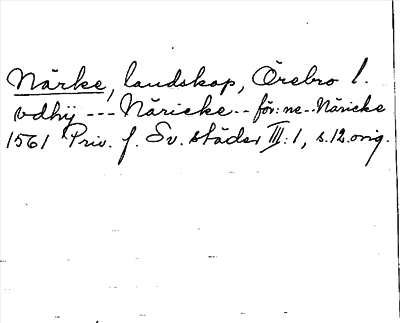 Närke, landskap, Örebro l.
vdhij --- Näricke -- för: ne -- Näricke
1561 Priv. f. Sv. städer III:1, s.12.orig.